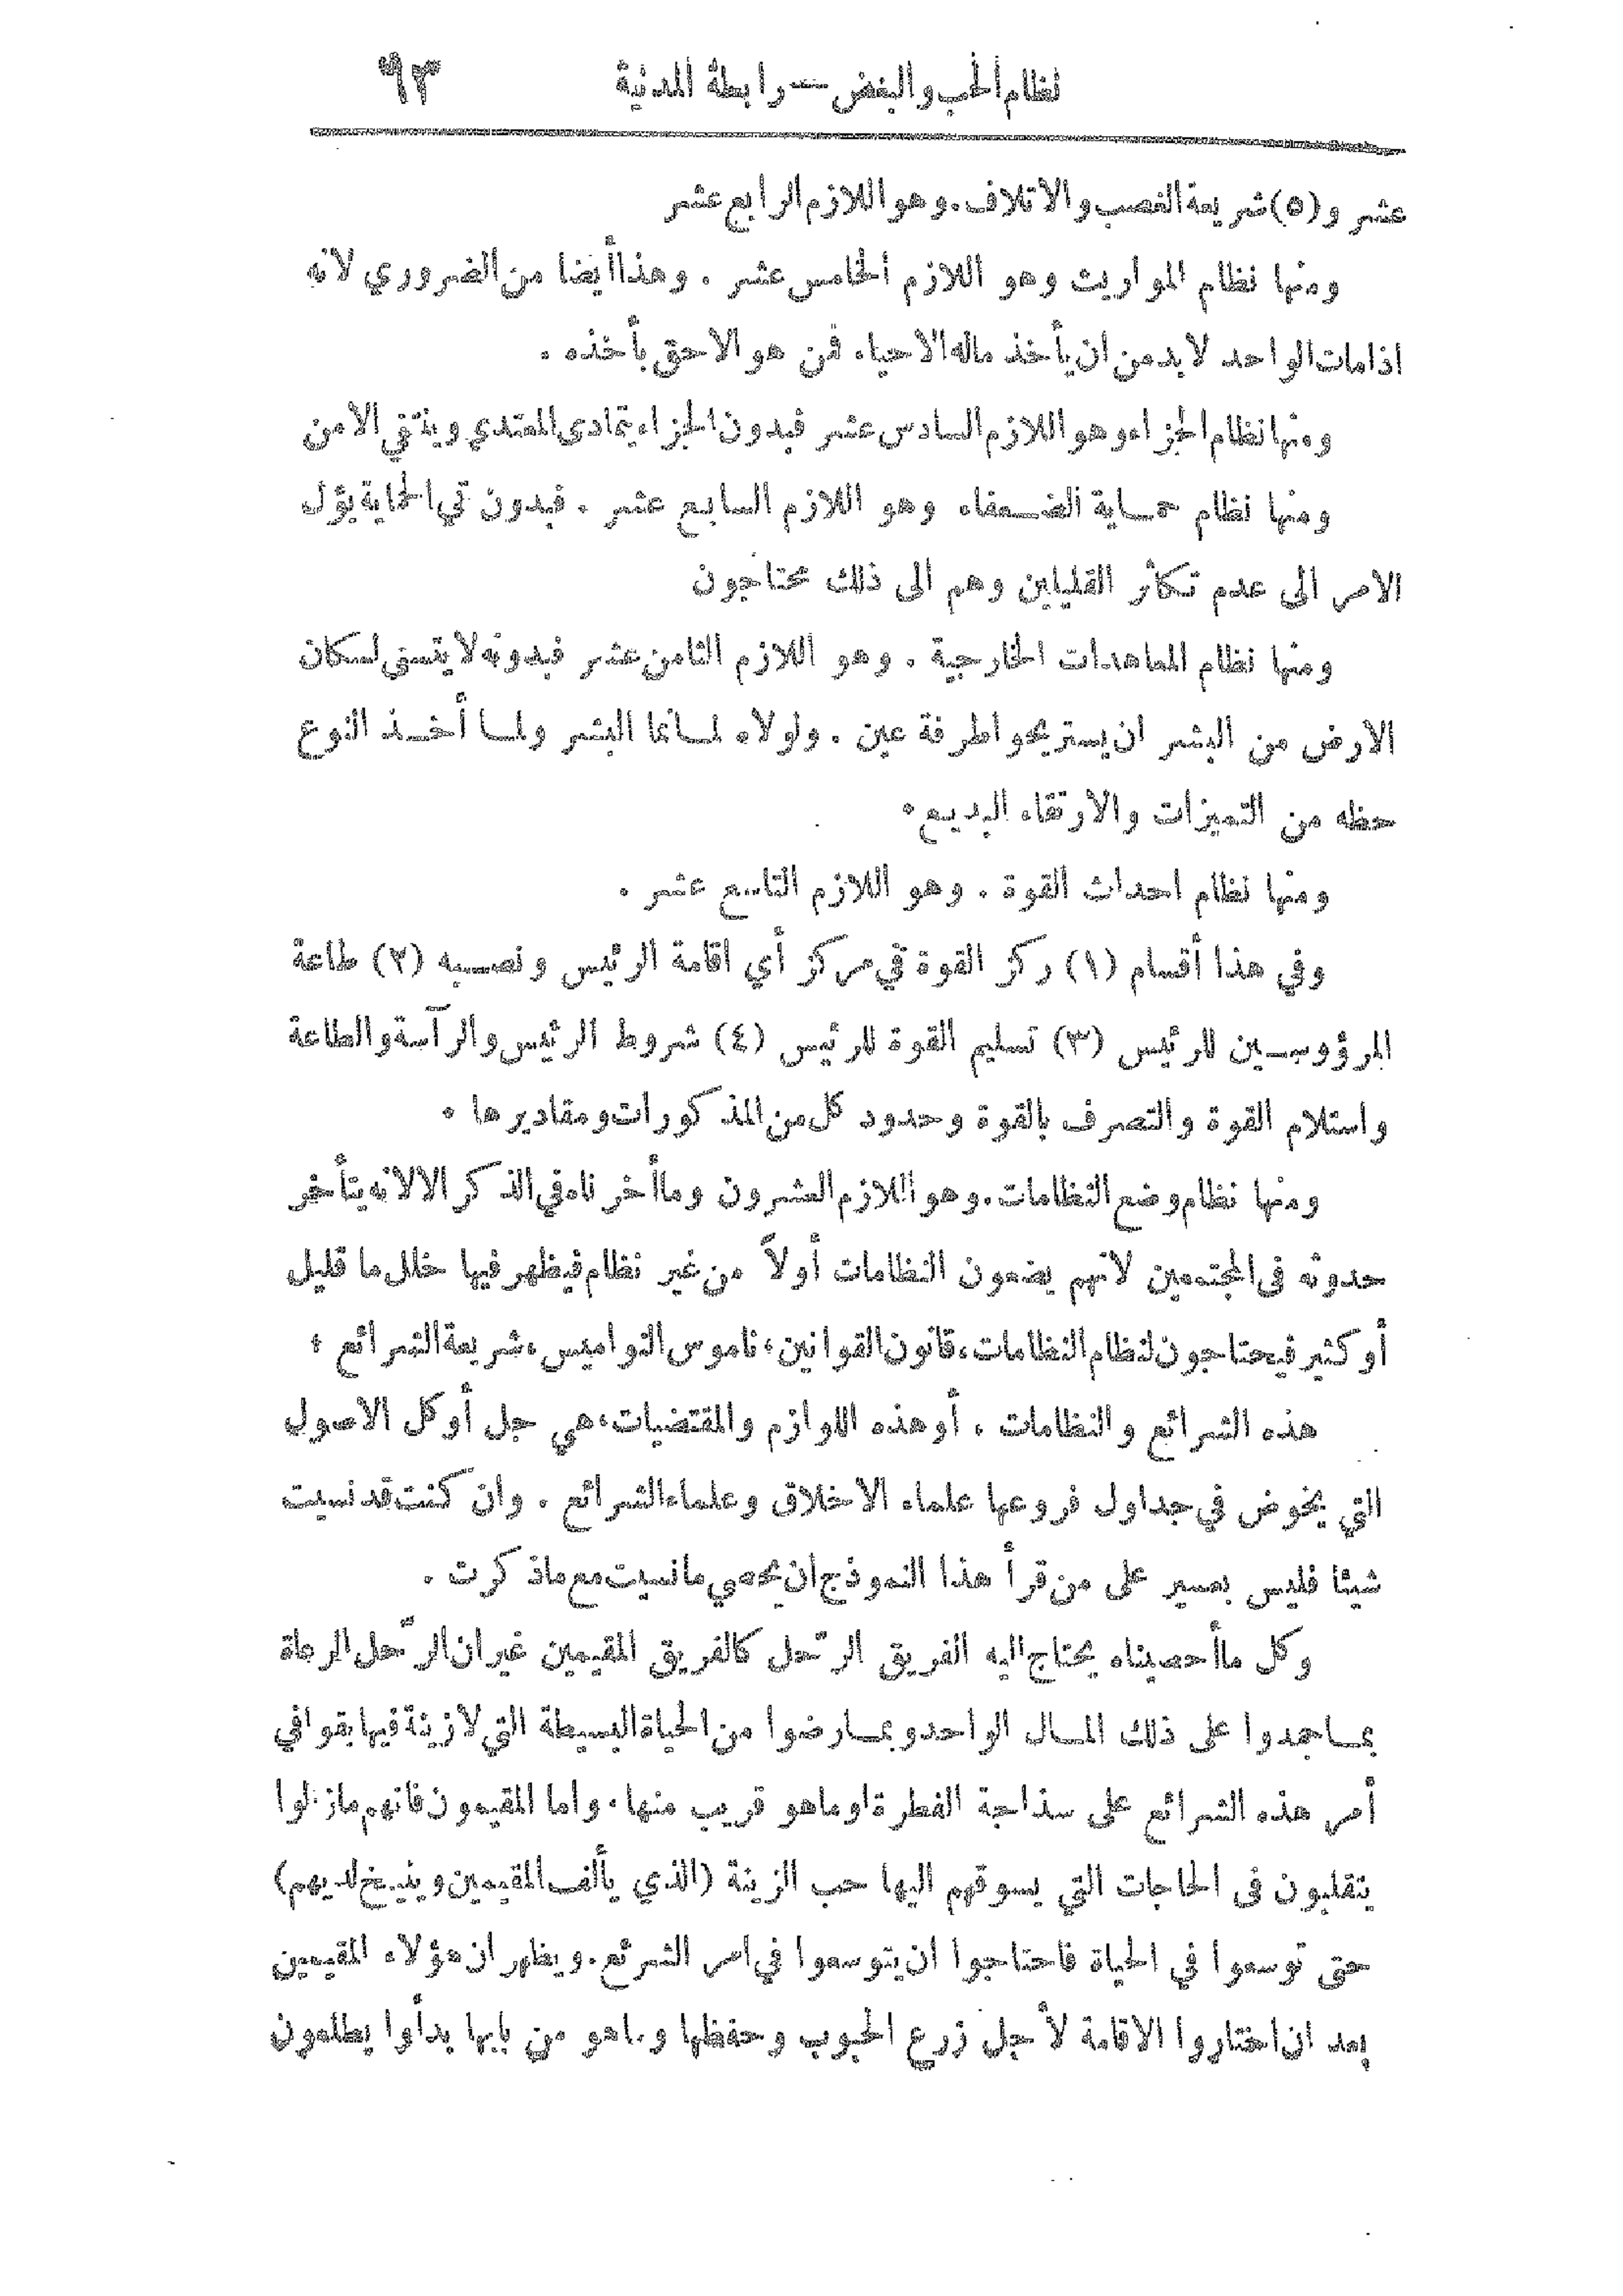 نظام الحب والبغض — رابطة المدنية ٩٣
عشر و(٥) شريعة الغصب والاتلاف. وهو اللازم الرابع عشر
ومنها نظام المواريث وهو اللازم الخامس عشر . وهذا أيضا من الضروري لانه
اذا مات الواحد لا بد من ان يأخذ ماله الاحياء فمن هو الاحق بأخذه .
ومنها نظام الجزاء وهو اللازم السادس عشر فبدون الجزاء يتمادى المعتدي وينتفي الامن
ومنها نظام حماية الضعفاء وهو اللازم السابع عشر . فبدون تي الحماية يؤل
الامر الى عدم تكاثر القليلين وهم الى ذلك محتاجون
ومنها نظام المعاهدات الخارجية . وهو اللازم الثامن عشر فبدونه لا يتسنى لسكان
الارض من البشر ان يستريحوا طرفة عين . ولولاه لما نما البشر ولما أخذ النوع
حظه من التميزات والارتقاء البديع .
ومنها نظام احداث القوة . وهو اللازم التاسع عشر .
وفي هذا أقسام (١) ركز القوة في مركز أي اقامة الرئيس ونصبه (٢) طاعة
المرؤوسين للرئيس (٣) تسليم القوة للرئيس (٤) شروط الرئيس والرآسة والطاعة
واستلام القوة والتصرف بالقوة وحدود كل من المذكورات ومقاديرها .
ومنها نظام وضع النظامات . وهو اللازم العشرون وما أخرناه في الذكر الا لانه يتأخر
حدوثه فى المجتمعين لانهم يضعون النظامات أولاً من غير نظام فيظهر فيها خلل ما قليل
أو كثير فيحتاجون لنظام النظامات، قانون القوانين، ناموس النواميس، شريعة الشرائع ؛
هذه الشرائع والنظامات ، أو هذه اللوازم والمقتضيات، هي جل أو كل الاصول
التي يخوض في جداول فروعها علماء الاخلاق وعلماء الشرائع . وان كنت قد نسيت
شيئا فليس بعسير على من قرأ هذا النموذج ان يحصي ما نسيت مع ما ذكرت .
وكل ما أحصيناه يحتاج اليه الفريق الرّحل كالفريق المقيمين غير ان الرّحل الرعاة
بما جمدوا على ذلك المال الواحد وبما رضوا من الحياة البسيطة التي لا زينة فيها بقوا في
أمر هذه الشرائع على سذاجة الفطرة او ما هو قريب منها . واما المقيمون فانهم ما زالوا
يتقلبون فى الحاجات التي يسوقهم اليها حب الزينة (الذي يألف المقيمين وينيخ لديهم)
حتى توسعوا في الحياة فاحتاجوا ان يتوسعوا في امر الشرئع. ويظهر ان هؤلاء المقيمين
بعد ان اختاروا الاقامة لأجل زرع الحبوب وحفظها وما هو من بابها بدأوا يطلعون